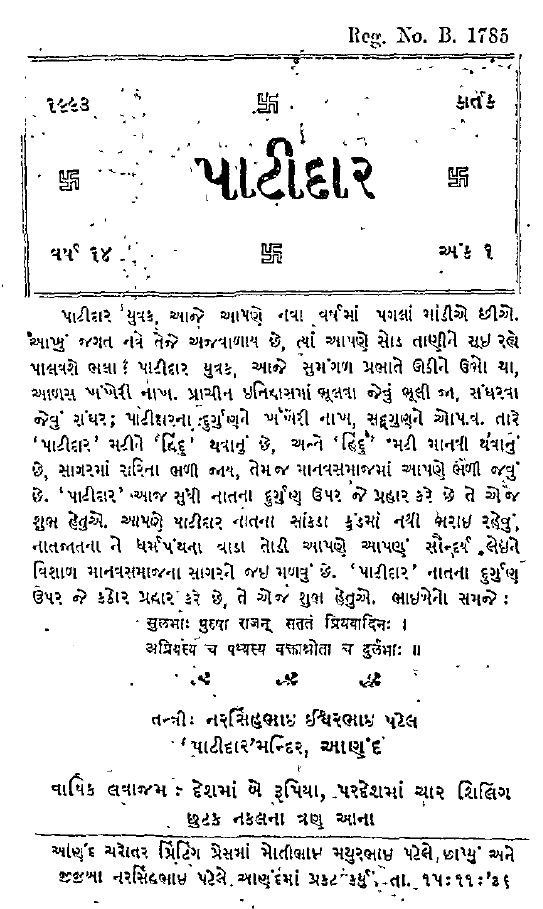 Reg. No. B. 1785
૧૯૯૩ કાર્તક
પાટીદાર
વર્ષ ૧૪ અંક ૧
પાટીદાર યુવક, આજે આપણે નવા વર્ષમાં પગલાં માંડીએ છીએ.
આખું જગત નવે તેજે અજવાળાય છે, ત્યાં આપણે સોડ તાણીને સૂઇ રહ્યે
પાલવશે ભલા ? પાટીદાર યુવક, આજે સુમંગળ પ્રભાતે ઊઠીને ઉભો થા,
આળસ ખંખેરી નાખ. પ્રાચીન ઇતિહાસમાં ભૂલવા જેવું ભૂલી જા, સંઘરવા
જેવું સંઘર; પાટીદારના દુર્ગુણને ખંખેરી નાખ, સદ્ગુણને ઓપાવ. તારે
'પાટીદાર' મટીને 'હિંદુ' થવાનું છે, અને 'હિંદુ' મટી માનવી થવાનું
છે, સાગરમાં સરિતા ભળી જાય, તેમજ માનવસમાજમાં આપણે ભળી જવું
છે. 'પાટીદાર' આજ સુધી નાતના દુર્ગુણ ઉપર જે પ્રહાર કરે છે તે એજ
શુભ હેતુએ. આપણે પાટીદાર નાતના સાંકડા કુંડમાં નથી ભરાઇ રહેવું,
નાતજાતના ને ધર્મપંથના વાડા તોડી આપણે આપણું સૌન્દર્ય લેઇને
વિશાળ માનવસમાજના સાગરને જઇ મળવું છે. 'પાટીદાર' નાતના દુર્ગુણ
ઉપર જે કઠોર પ્રહાર કરે છે, તે એજ શુભ હેતુએ. ભાઇબેનો સમજે :
सुलभाः पुरुषा राजन् सततं प्रियवादिनः ।
अप्रियस्य च पथ्यस्य वक्ताश्रोता च दुर्लभाः ॥
તન્ત્રી: નરસિંહભાઇ ઈશ્વરભાઇ પટેલ
'પાટીદાર'મન્દિર, આણંદ
વાર્ષિક લવાજમ : દેશમાં બે રૂપિયા, પરદેશમાં ચાર શિલિંગ
છુટક નકલના ત્રણ આના
આણંદ ચરોતર પ્રિંટિંગ પ્રેસમાં મોતીભાઇ મથુરભાઇ પટેલે છાપ્યું અને
નરસિંહભાઇ પટેલે આણંદમાં પ્રકટ કર્યું. તા. ૧૫:૧૧:'૩૬